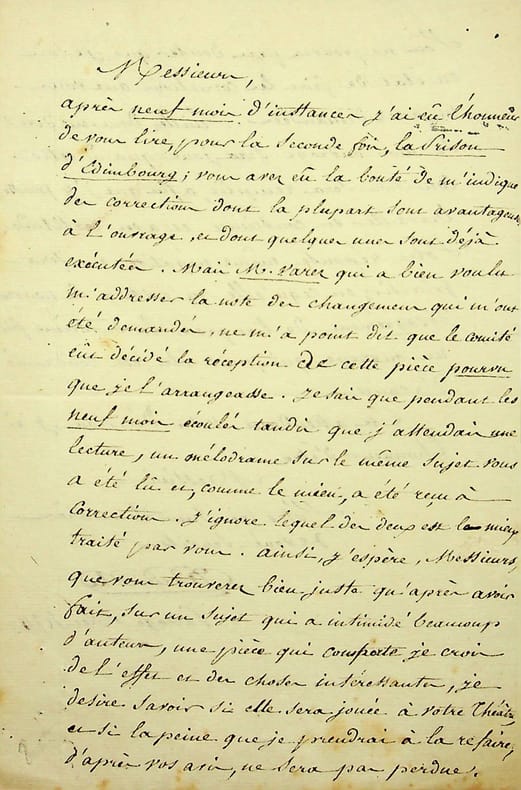 Messieurs,
après neuf mois d'instances j'ai eû l'honneur
de vous lire, pour la seconde fois, la Prison
d'Edimbourg; vous avez eû la bonté de m'indiquer
des corrections dont la plupart sont avantageuses
à l'ouvrage, et dont quelques unes sont déjà
exécutées. Mais M. Varez qui a bien voulu
m'addresser la note des changemens qui m'ont
été demandés, ne m'a point dit que le comité
eût décidé la réception de cette pièce pourvu
que je l'arrangeasse. Je sais que pendant les
neuf mois écoulés tandis que j'attendais une
lecture, un mélodrame sur le même sujet vous
a été lû et, comme le mien, a été reçu à
correction. J'ignore lequel des deux est le mieux
traité par vous. ainsi, j'espère, Messieurs,
que vous trouverez bien juste qu'après avoir
fait, sur un sujet qui a intimidé beaucoup
d'auteurs, une pièce qui comporte je crois
de l'effet et des choses intéressantes, je
desire savoir si elle sera jouée à votre Théâtre,
et si la peine que je prendrai à la refaire,
d'après vos avis, ne sera pas perdue.